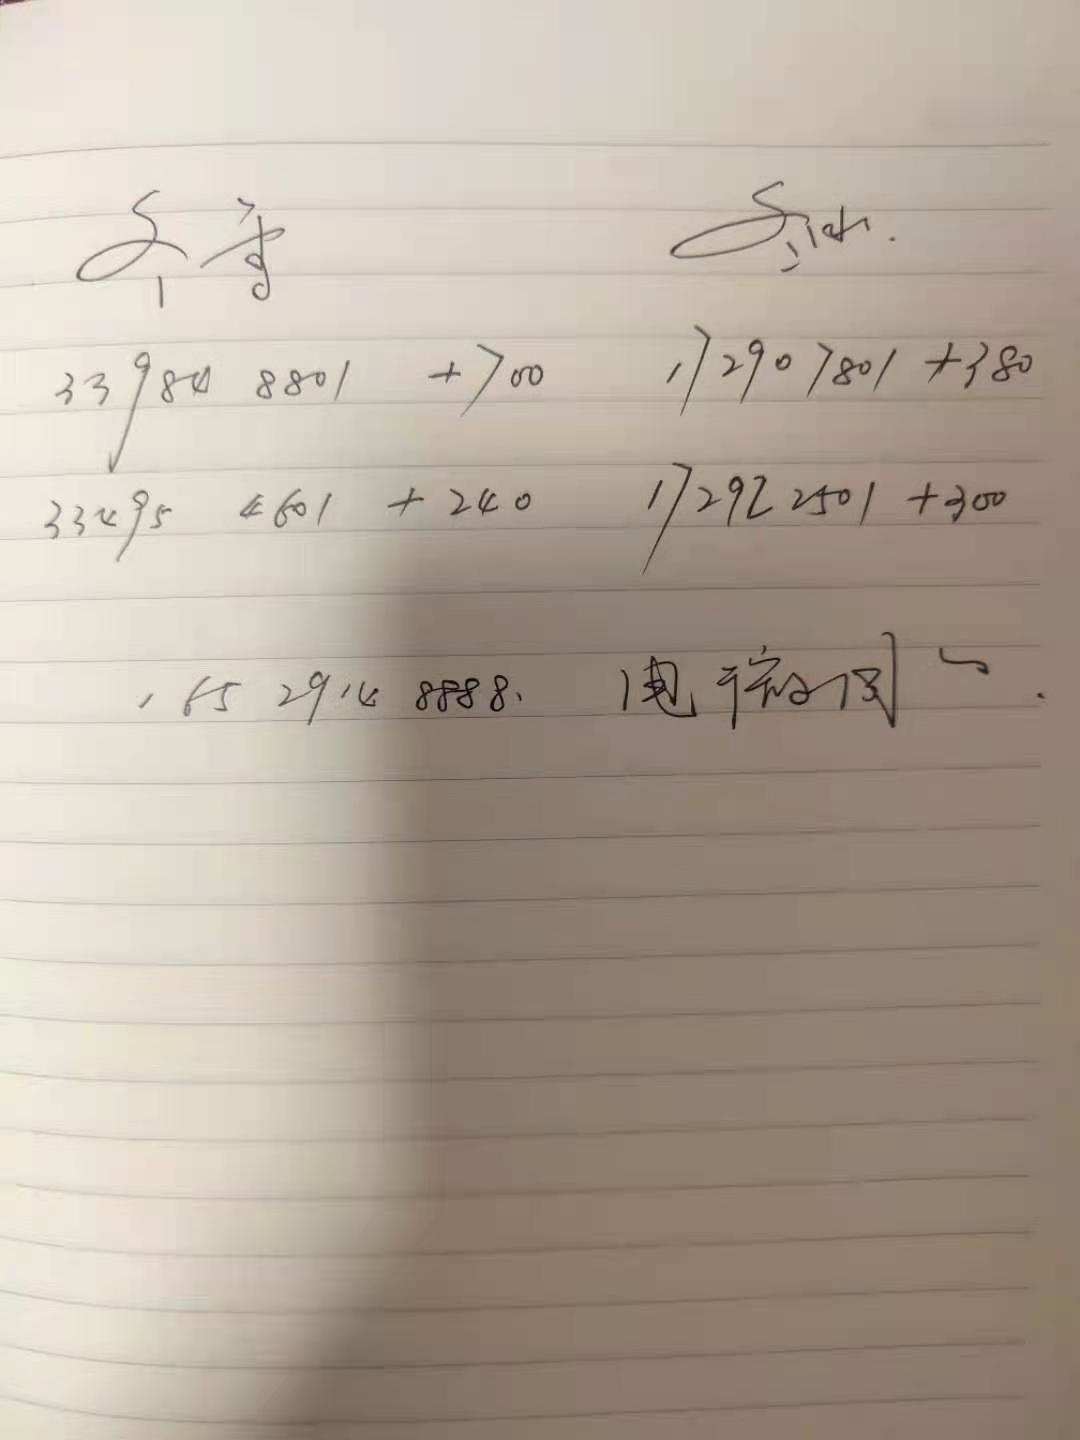 339848801 +700 172907801 +380
334954601 +240 172922501 +300
16529148888. 电 微 同